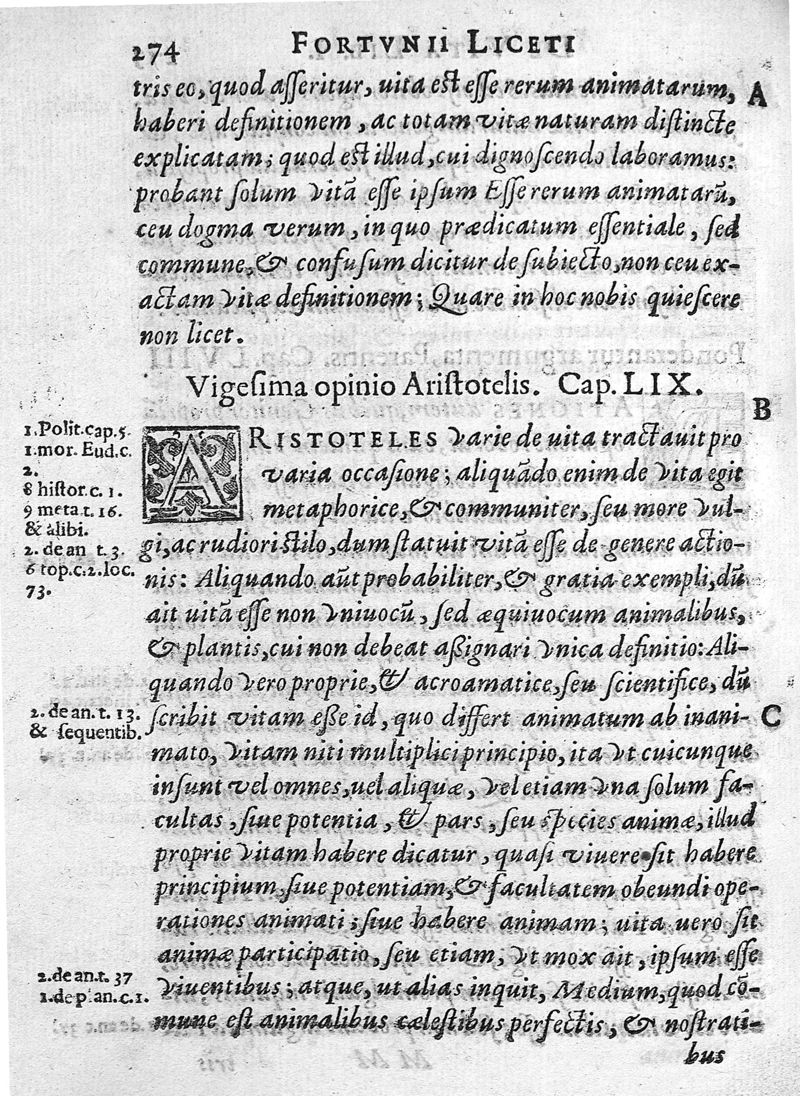 274 FORTVNII LICETI
tris eo, quod asseritur, uita est esse rerum animatarum, A
haberi definitionem, ac totam vitæ naturam distincte
explicatam; quod est illud, cui dignoscendo laboramus:
probant solum vitã esse ipsum Esse rerum animatarũ,
ceu dogma verum, in quo prædicatum essentiale, sed
commune, & confusum dicitur de subiecto, non ceu ex-
actam vitæ definitionem; Quare in hoc nobis quiescere
non licet.
Vigesima opinio Aristotelis. Cap. LIX.
B
1. Polit. cap. 5.
1. mor. Eud. c.
2.
8 histor. c. 1.
9 meta. t. 16.
& alibi.
2. de an t. 3.
6 top. c. 2. loc.
73.
ARISTOTELES varie de uita tractauit pro
varia occasione; aliquãdo enim de vita egit
metaphorice, & communiter, seu more vul-
gi, ac rudiori stilo, dum statuit vitã esse de genere actio-
nis: Aliquando aũt probabiliter, & gratia exempli, dũ
ait uitã esse non vniuocũ, sed æquiuocum animalibus,
& plantis, cui non debeat assignari vnica definitio: Ali-
quando vero proprie, & acroamatice, seu scientifice, dũ
2. de an. t. 13.
& sequentib.
scribit vitam esse id, quo differt animatum ab inani- C
mato, vitam niti multiplici principio, ita vt cuicunque
insunt vel omnes, uel aliquæ, vel etiam vna solum fa-
cultas, siue potentia, & pars, seu species animæ, illud
proprie vitam habere dicatur, quasi viuere sit habere
principium, siue potentiam, & facultatem obeundi ope-
rationes animati; siue habere animam; uita uero sit
animæ participatio, seu etiam, vt mox ait, ipsum esse
2. de an. t. 37
1. de plan. c. 1.
viuentibus; atque, ut alias inquit, Medium, quod cõ-
mune est animalibus cælestibus perfectis, & nostrati-
bus